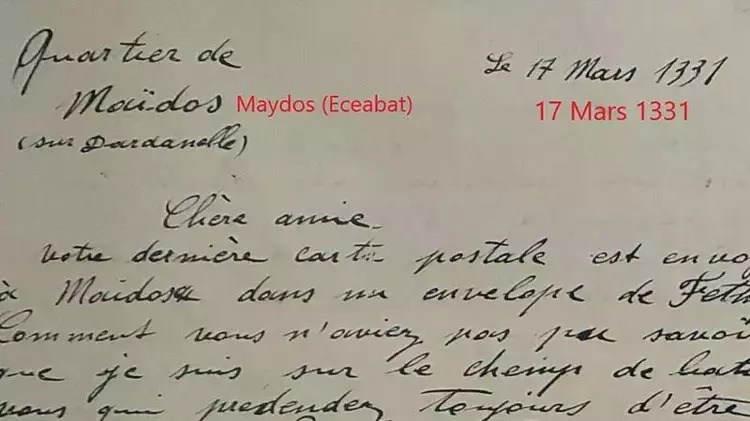 Quartier de
Maïdos
(sur Dardanelle)
Maydos (Eceabat)
Le 17 Mars 1331
17 Mars 1331
Chère amie
Votre dernière carte postale est envo
à Maidos dans un envelope de
Comment vous n'aviez pas pu savoi
que je suis sur le champ de bata
vous qui pretendez toujours d'être